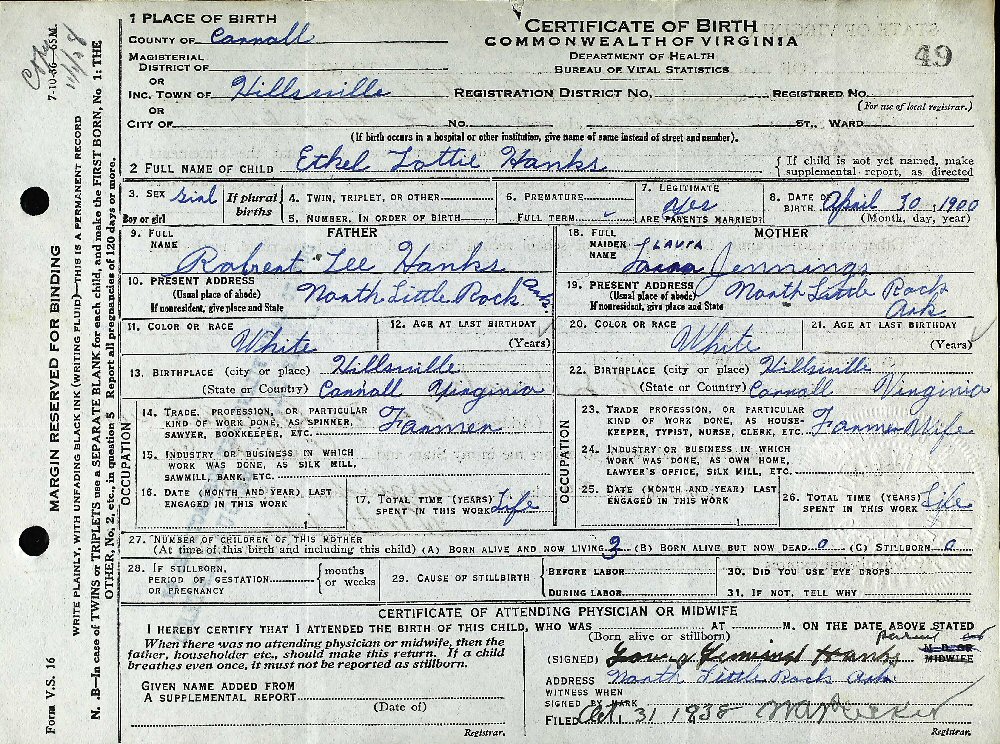 1 PLACE OF BIRTH
COUNTY OF Carroll
MAGISTERIAL
DISTRICT OF
OR
INC. TOWN OF Hillsville
OR
CITY OF No. ST., WARD
CERTIFICATE OF BIRTH
COMMONWEALTH OF VIRGINIA
DEPARTMENT OF HEALTH
BUREAU OF VITAL STATISTICS
49
REGISTRATION DISTRICT NO. REGISTERED NO.
(For use of local registrar.)
(If birth occurs in a hospital or other institution, give name of same instead of street and number).
2 FULL NAME OF CHILD Ethel Lottie Hanks { If child is not yet named, make supplemental report, as directed
3. SEX Girl
Boy or girl
If plural births
4. TWIN, TRIPLET, OR OTHER
5. NUMBER, IN ORDER OF BIRTH
6. PREMATURE
FULL TERM
7. LEGITIMATE
yes
ARE PARENTS MARRIED?
8. DATE OF BIRTH April 30, 1900
(Month, day, year)
9. FULL NAME FATHER
Robert Lee Hanks
10. PRESENT ADDRESS
(Usual place of abode)
If nonresident, give place and State
North Little Rock Ark.
11. COLOR OR RACE
White
12. AGE AT LAST BIRTHDAY
(Years)
13. BIRTHPLACE (city or place) Hillsville
(State or Country) Carroll Virginia
OCCUPATION
14. TRADE, PROFESSION, OR PARTICULAR KIND OF WORK DONE, AS SPINNER, SAWYER, BOOKKEEPER, ETC. Farmer
15. INDUSTRY OR BUSINESS IN WHICH WORK WAS DONE, AS SILK MILL, SAWMILL, BANK, ETC.
16. DATE (MONTH AND YEAR) LAST ENGAGED IN THIS WORK
17. TOTAL TIME (YEARS) SPENT IN THIS WORK Life
18. FULL MAIDEN NAME MOTHER
LAURA
Jennings
19. PRESENT ADDRESS
(Usual place of abode)
If nonresident, give place and State
North Little Rock
Ark
20. COLOR OR RACE
White
21. AGE AT LAST BIRTHDAY
(Years)
22. BIRTHPLACE (city or place) Hillsville
(State or Country) Carroll Virginia
OCCUPATION
23. TRADE, PROFESSION, OR PARTICULAR KIND OF WORK DONE, AS HOUSEKEEPER, TYPIST, NURSE, CLERK, ETC. Farmer Wife
24. INDUSTRY OR BUSINESS IN WHICH WORK WAS DONE, AS OWN HOME, LAWYER'S OFFICE, SILK MILL, ETC.
25. DATE (MONTH AND YEAR) LAST ENGAGED IN THIS WORK
26. TOTAL TIME (YEARS) SPENT IN THIS WORK Life
27. NUMBER OF CHILDREN OF THIS MOTHER
(At time of this birth and including this child) (A) BORN ALIVE AND NOW LIVING 3 (B) BORN ALIVE BUT NOW DEAD 0 (C) STILLBORN 0
28. IF STILLBORN, PERIOD OF GESTATION OR PREGNANCY { months or weeks
29. CAUSE OF STILLBIRTH { BEFORE LABOR
DURING LABOR
30. DID YOU USE EYE DROPS
31. IF NOT, TELL WHY
CERTIFICATE OF ATTENDING PHYSICIAN OR MIDWIFE
I HEREBY CERTIFY THAT I ATTENDED THE BIRTH OF THIS CHILD, WHO WAS AT M. ON THE DATE ABOVE STATED
(Born alive or stillborn)
When there was no attending physician or midwife, then the father, householder etc., should make this return. If a child breathes even once, it must not be reported as stillborn.
(SIGNED) Hanks
M. D. OR
MIDWIFE
GIVEN NAME ADDED FROM
A SUPPLEMENTAL REPORT
(Date of)
Registrar.
ADDRESS North Little Rock Ark
WITNESS WHEN
SIGNED BY MARK
FILED Oct. 31 1938
Registrar.
7-10-36—65M.
MARGIN RESERVED FOR BINDING
WRITE PLAINLY, WITH UNFADING BLACK INK (WRITING FLUID)—THIS IS A PERMANENT RECORD
N. B—In case of TWINS or TRIPLETS use a SEPARATE BLANK for each child, and make the FIRST BORN, No 1: THE
OTHER, No. 2, etc., in question 5 Report all pregnancies of 120 days or more.
Form V.S. 16